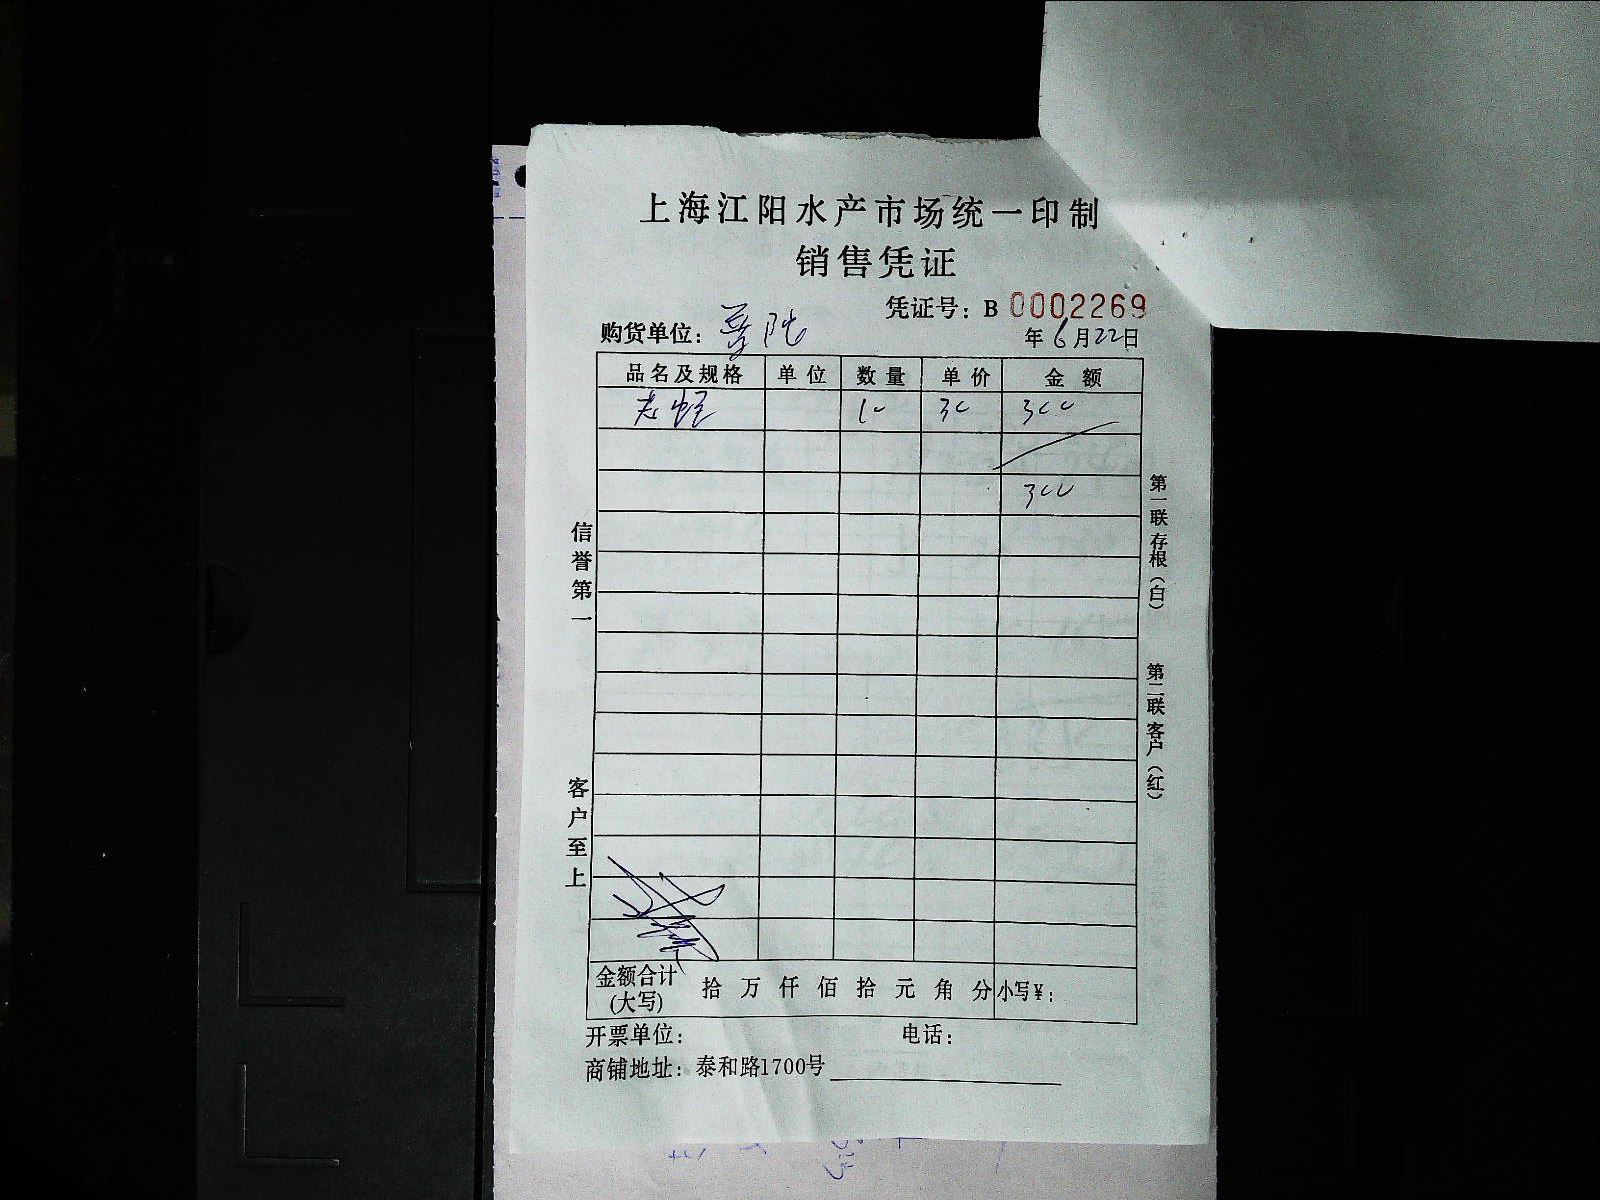 上海江阳水产市场统一印制
销售凭证
凭证号：B 0002269
购货单位：普陀
年6月22日
品名及规格 单位 数量 单价 金额
10 30 300
300
信誉第一
客户至上
第一联存根（白）
第二联客户（红）
金额合计(大写) 拾 万 仟 佰 拾 元 角 分 小写¥：
开票单位： 电话：
商铺地址：泰和路1700号